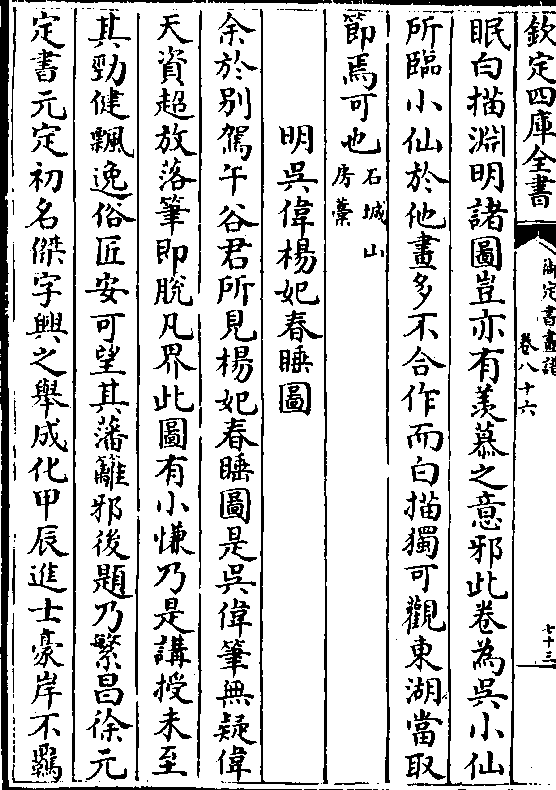 欽定四庫全書
御定書畫譜
卷八十六
七十三
眠白描淵明諸圖豈亦有羨慕之意邪此卷為吳小仙
所臨小仙於他畫多不合作而白描獨可觀東湖當取
節焉可也石城山房藁
明吳偉楊妃春睡圖
余於别駕午谷君所見楊妃春睡圖是吳偉筆無疑偉
天資超放落筆即脫凡界此圖有小慊乃是講授未至
其勁健飄逸俗匠安可望其藩籬邪後題乃繁昌徐元
定書元定初名傑字興之舉成化甲辰進士豪岸不羈